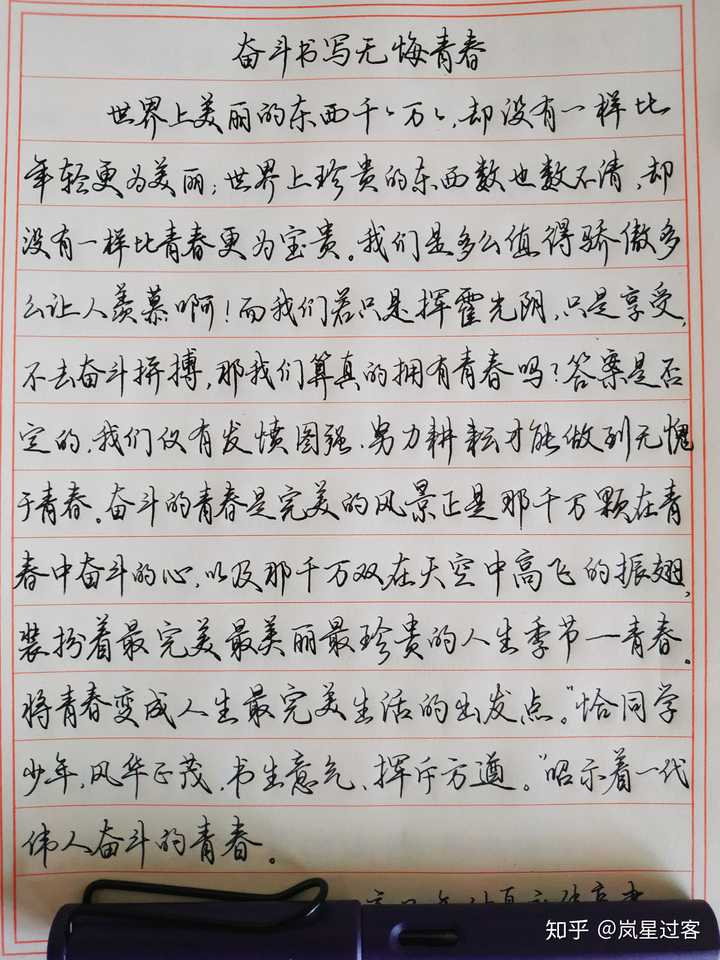 奋斗书写无悔青春
世界上美丽的东西千千万万,却没有一样比
年轻更为美丽;世界上珍贵的东西数也数不清,却
没有一样比青春更为宝贵。我们是多么值得骄傲多
么让人羡慕啊!而我们若只是挥霍光阴,只是享受,
不去奋斗拼搏,那我们算真的拥有青春吗?答案是否
定的,我们仅有发愤图强、努力耕耘才能做到无愧
于青春。奋斗的青春是完美的风景正是那千万颗在青
春中奋斗的心,以及那千万双在天空中高飞的振翅,
装扮着最完美最美丽最珍贵的人生季节一青春。
将青春变成人生最完美生活的出发点。“恰同学
少年,风华正茂,书生意气、挥斥方遒。”昭示着一代
伟人奋斗的青春。
知乎 @岚星过客